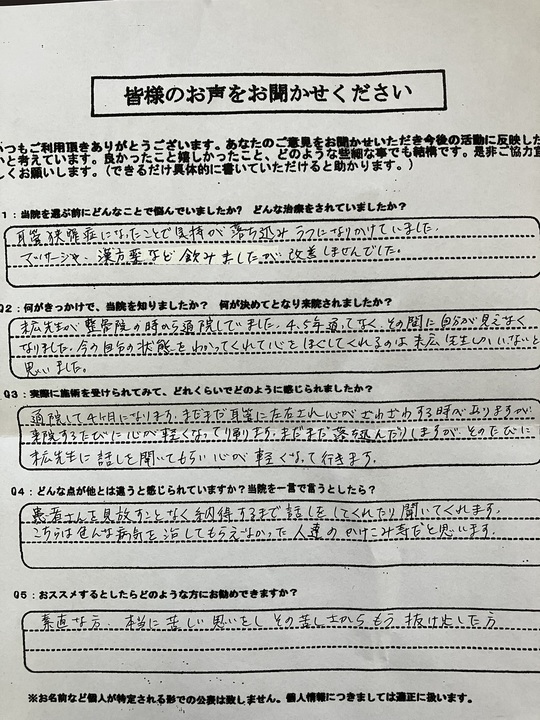 皆様のお声をお聞かせください
いつもご利用頂きありがとうございます。あなたのご意見をお聞かせいただき今後の活動に反映した
いと考えています。良かったこと嬉しかったこと、どのような些細な事でも結構です。是非ご協力宜
しくお願いします。(できるだけ具体的に書いていただけると助かります。)
1：当院を選ぶ前にどんなことで悩んでいましたか？ どんな治療をされていましたか？
耳管狭窄症になったことで気持が落ち込みうつになりかけていました。
マッサージや、漢方薬など飲みましたが改善しませんでした。
Q2：何がきっかけで、当院を知りましたか？ 何が決めてとなり来院されましたか？
末広先生が整骨院の時から通院していました。4,5年通ってなく、その間に自分が見えなく
なりました。今の自分の状態をわかってくれて心をほぐしてくれるのは末広先生しかいないと
思いました。
Q3：実際に施術を受けられてみて、どれくらいでどのように感じられましたか？
通院して4ヶ月になります。まだまだ耳管に左右され心がざわざわする時がありますが
来院するたびに心が軽くなって帰ります。まだまだ落ち込んだりしますが、そのたびに
末広先生に話しを聞いてもらい心が軽くなって行きます。
Q4：どんな点が他とは違うと感じられていますか？当院を一言で言うとしたら？
患者さんを見放すことなく納得するまで話しをしてくれたり聞いてくれます。
こちらは色んな病気を治してもらえなかった人達のかけこみ寺だと思います。
Q5：おススメするとしたらどのような方にお勧めできますか？
素直な方、本当に苦しい思いをしその苦しさからもう抜け出した方
※お名前など個人が特定される形での公表は致しません。個人情報につきましては適正に扱います。